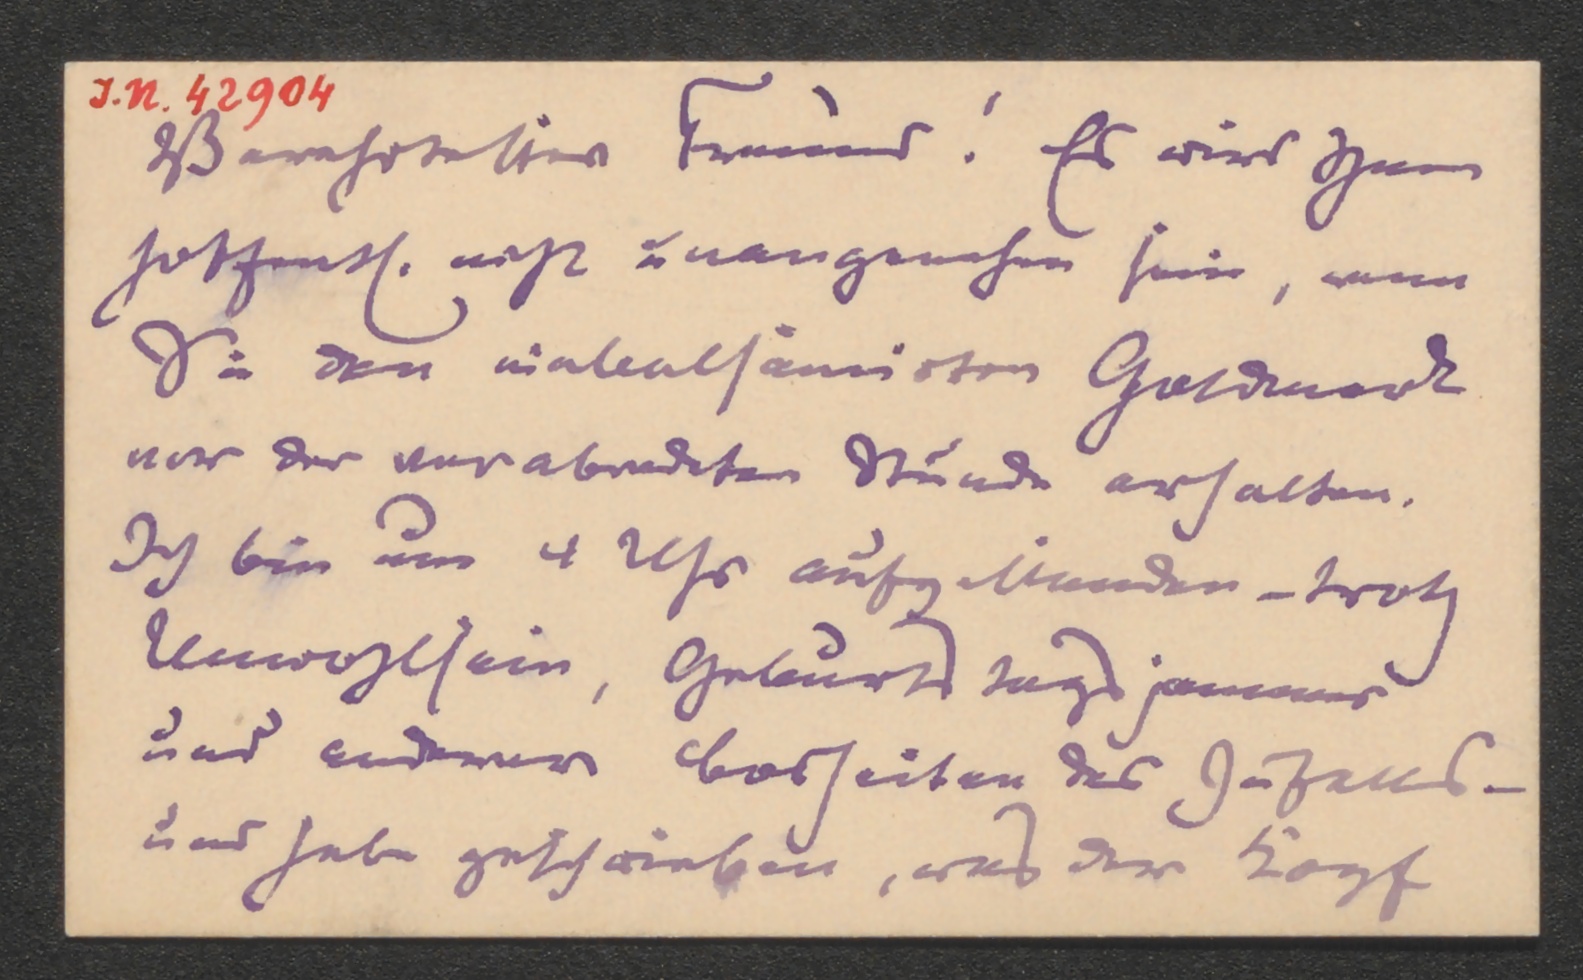 I.N. 42904
Verehrtester Freund! Es wird Ihnen
hoffentl. nicht unangenehm sein, wenn
Sie den Goldmark
vor der verabredeten Stunde erhalten.
Ich bin um 4 Uhr aufgestanden – trotz
Unwohlsein, Geburtstagsjammer
und anderer Bosheiten des Zufalls –
und habe geschrieben, was der Kopf